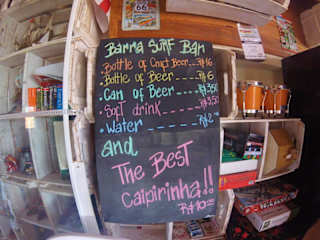 Barra Surf Bar
Bottle of Craft Beer... R$16
Bottle of Beer .... R$6
• Can of Beer.... R$3,50
• Soft drink .... R$3,50
• Water ---- R$2
and
The Best
Caipirinha!!
R$10
66